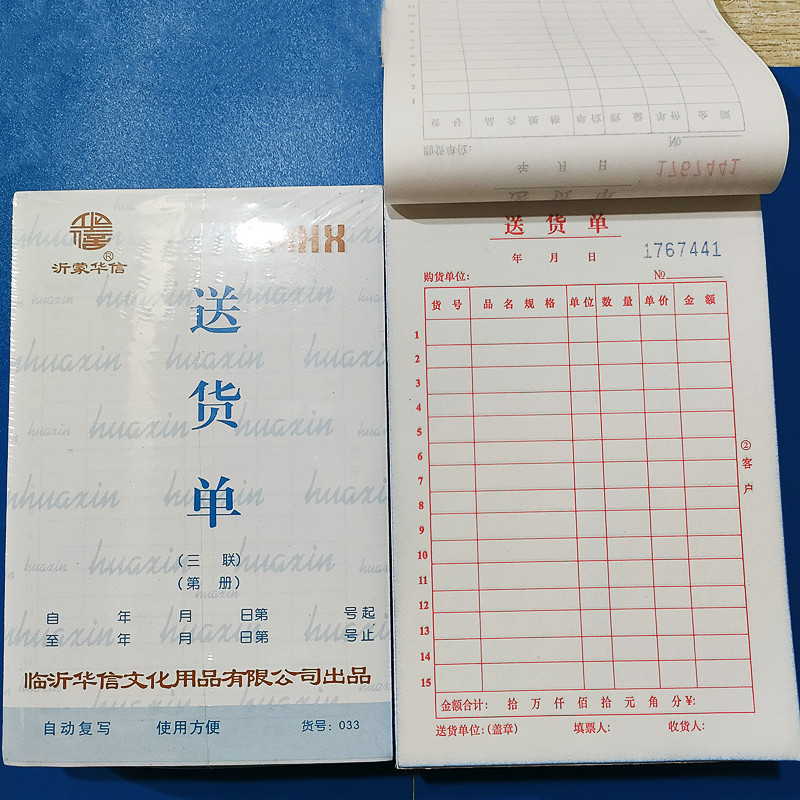 沂蒙华信®
HX
送货单
(三 联)
(第 册)
自 年 月 日第 号起
至 年 月 日第 号止
临沂华信文化用品有限公司出品
自动复写 使用方便 货号: 033
huaxin
1767441
送货单
年 月 日 1767441
购货单位: №
货号 品名规格 单位 数量 单价 金额
1
2
3
4
5
6
7
8
9
10
11
12
13
14
15
②客户
金额合计: 拾 万 仟 佰 拾 元 角 分¥:
送货单位:(盖章) 填票人: 收货人: